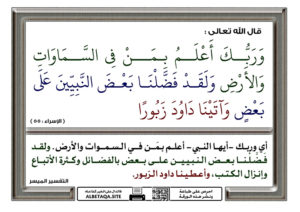 قال الله تعالى :
وَرَبُّكَ أَعْلَمُ بِمَنْ فِي السَّمَاوَاتِ
وَالْأَرْضِ وَلَقَدْ فَضَّلْنَا بَعْضَ النَّبِيِّينَ عَلَى
بَعْضٍ وَآتَيْنَا دَاوُدَ زَبُورًا
( الإسراء : ٥٥ )
أي وربك -أيها النبي- أعلم بمَن في السموات والأرض. ولقد
فَضَّلْنا بعض النبيين على بعض بالفضائل وكثرة الأتباع
وإنزال الكتب، وأعطينا داود الزبور.
التفسير الميسر
ALBETAQA.SITE